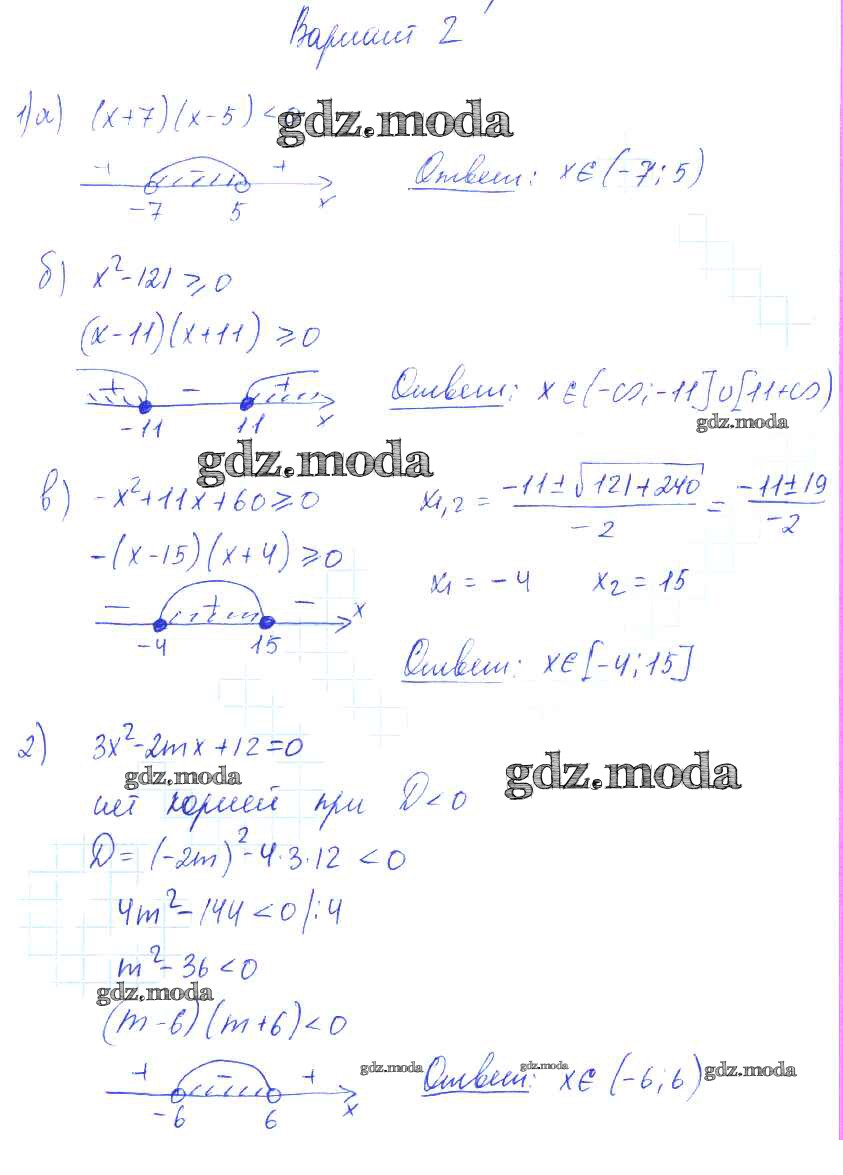 Вариант 2
1) а) (x+7)(x-5) < 0
gdz.moda
+ - +
-7 5 x
Ответ: x∈(-7; 5)
б) x²-121 ⩾ 0
(x-11)(x+11) ⩾ 0
+ - +
-11 11 x
Ответ: x∈(-∞; -11]∪[11+∞)
gdz.moda
gdz.moda
в) -x²+11x+60 ⩾ 0
x₁,₂ = (-11±√(121+240))/(-2) = (-11±19)/(-2)
-(x-15)(x+4) ⩾ 0
x₁ = -4 x₂ = 15
- + - x
-4 15
Ответ: x∈[-4; 15]
2) 3x²-2mx+12=0
gdz.moda
gdz.moda
нет корней при D<0
D = (-2m)²-4·3·12 < 0
4m²-144 < 0 /:4
m²-36 < 0
gdz.moda
(m-6)(m+6) < 0
+ - +
-6 6 x
gdz.moda
gdz.moda
Ответ: x∈(-6; 6)
gdz.moda